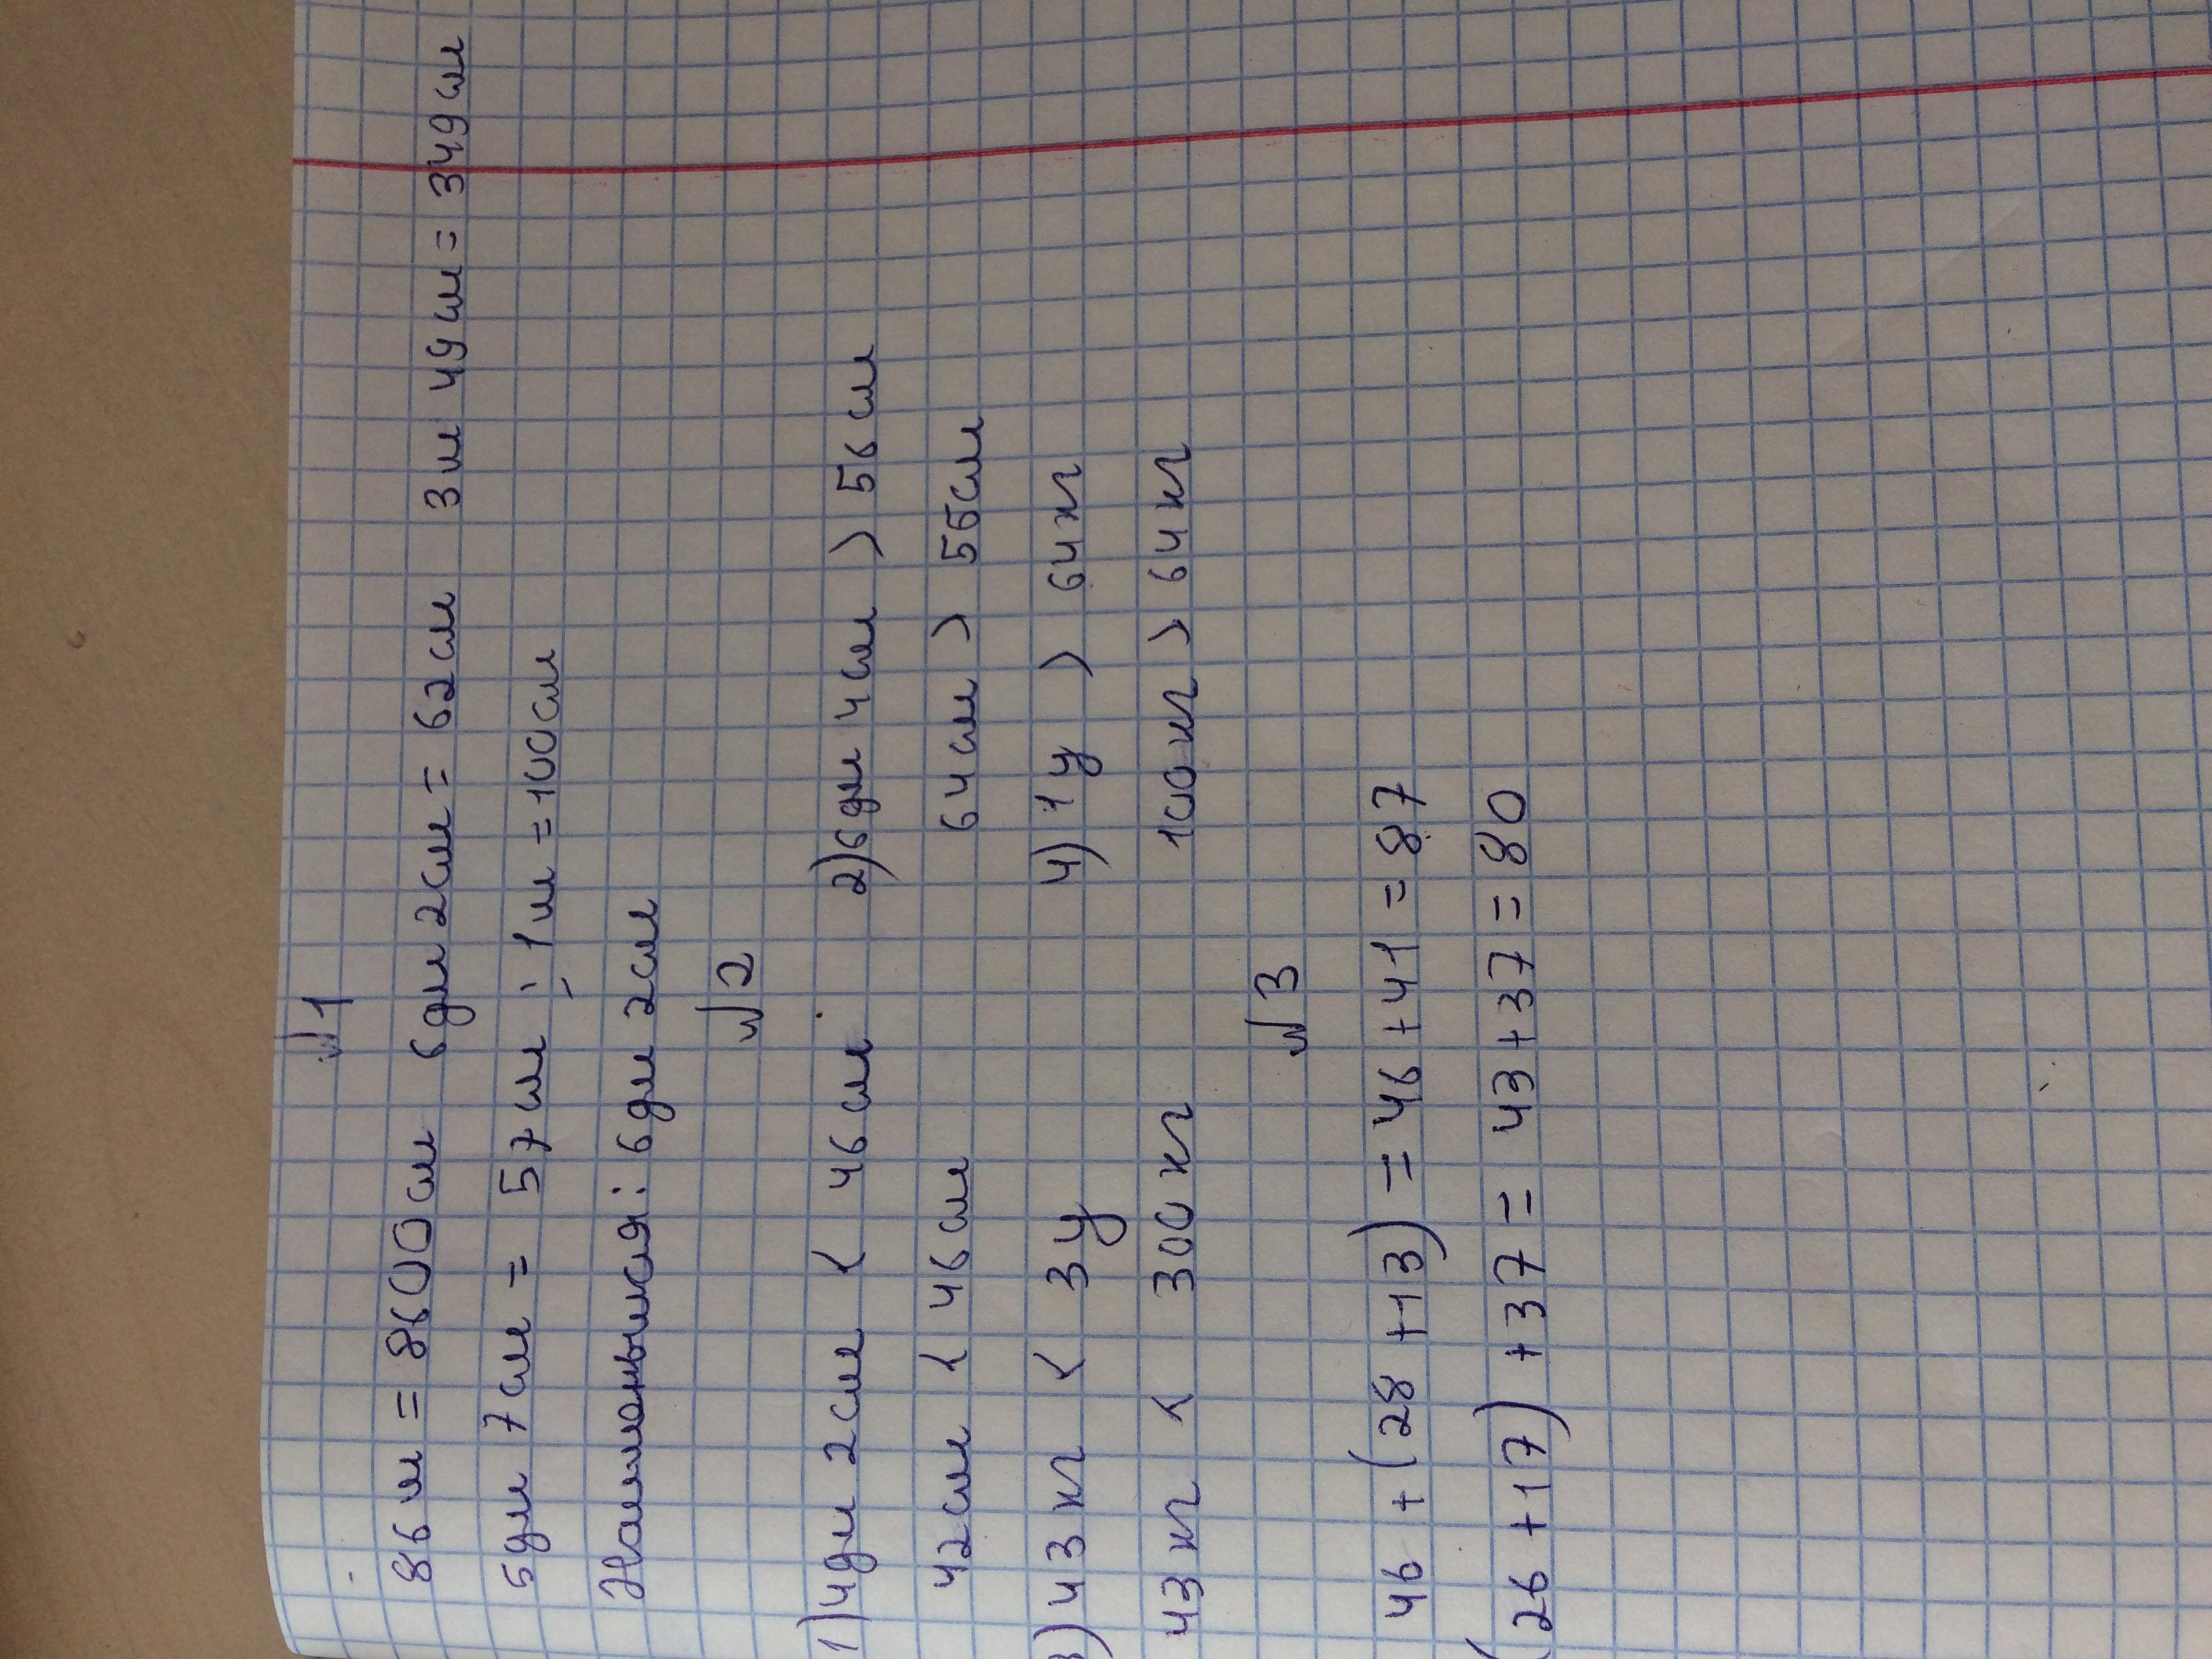 №1
86 м = 8600 см 6 дм 2 см = 62 см 3 м 49 см = 349 см
5 дм 7 см = 57 см ; 1 м = 100 см
Наименьшая: 6 дм 2 см
№2
1) 4 дм 2 см < 46 см 2) 6 дм 4 см > 56 см
42 см < 46 см 64 см > 56 см
3) 43 кг < 3 ц 4) 1 ц > 64 кг
43 кг < 300 кг 100 кг > 64 кг
№3
46 + (28 + 13) = 46 + 41 = 87
(26 + 17) + 37 = 43 + 37 = 80